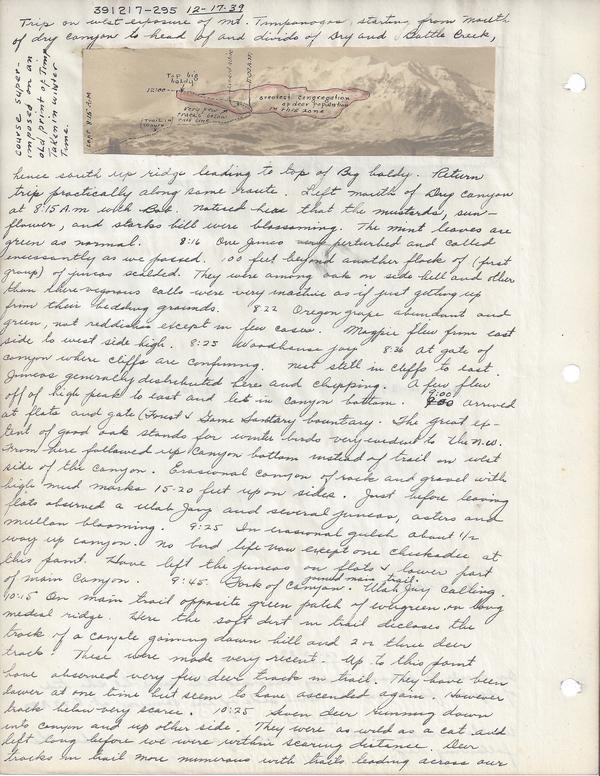 391217-295 12-17-39
Trip on west exposure of Mt. Timpanogos, starting from mouth
of dry canyon to head of and divide of Dry and Battle Creek,
course super-
imposed on an
old print of Timp
Taken in winter
Time.
Top big
baldy
12:00
Very few
tracks below
this line
Trail in
canyon
greatest congregation
of deer population
in this zone
Left 8:15 A.M
hence south up ridge leading to top of Big baldy. Return
trip practically along same route. Left mouth of Dry Canyon
at 8:15 A.m with Bob. noticed here that the mustards, sun-
flower, and storks bill were blossoming. The mint leaves are
green as normal. 8:16 One Junco very perturbed and called
incessantly as we passed. 100 feet beyond another flock of (first
group) of juncos scolded. They were among oak on side hill and other
than their vigorous calls were very inactive as if just getting up
from their bedding grounds. 8:22 Oregon grape abundant and
green, not reddish except in few cases. Magpie flew from east
side to west side high. 8:25 Woodhouse jay 8:26 At gate of
canyon where cliffs are confining. nest still in cliffs to east.
Juncos generally distributed here and chipping. A few flew
off of high peak to east and let in canyon bottom. 9:00 arrived
at flats and gate (Forest & Game Sanctary bountary. The great ex-
tent of good oak stands for winter birds very evident to the N.W.
From here followed up canyon bottom instead of trail on west
side of the canyon. Erosional canyon of rock and gravel with
high mud marks 15-20 feet up on sides. Just before leaving
flats observed a Utah Jay and several juncos, asters and
mullen blooming. 9:25 In erosional gulch about 1/2
way up canyon. No bird life now except one chickadee at
this point. Have left the juncos on flats & lower part
of main canyon. 9:45. Fork of canyon. joined main trail. Utah Jay calling.
10:15 On main trail opposite green patch of evergreen on long
medial ridge. Here the soft dirt in trail discloses the
track of a coyote going down hill and 2 or three deer
track. These were made very recent. Up to this point
have observed very few deer track in trail. They have been
lower at one time but seem to have ascended again. However
track below very scarce. 10:25 Seven deer running down
into canyon and up other side. They were as wild as a cat and
left long before we were within scaring distance. Deer
tracks in trail more numerous with trails leading across our